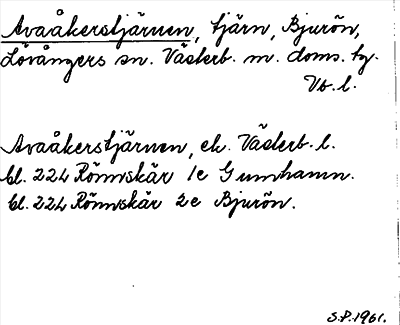 Avaåkerstjärnen, tjärn, Bjurön,
Lövångers sn. Västerb. m. doms. tg.
Vb. l.
Avaåkerstjärnen, ek. Västerb. l.
bl. 224 Rönnskär 1e Gumhamn.
bl. 224 Rönnskär 2e Bjurön.
S.P. 1961.